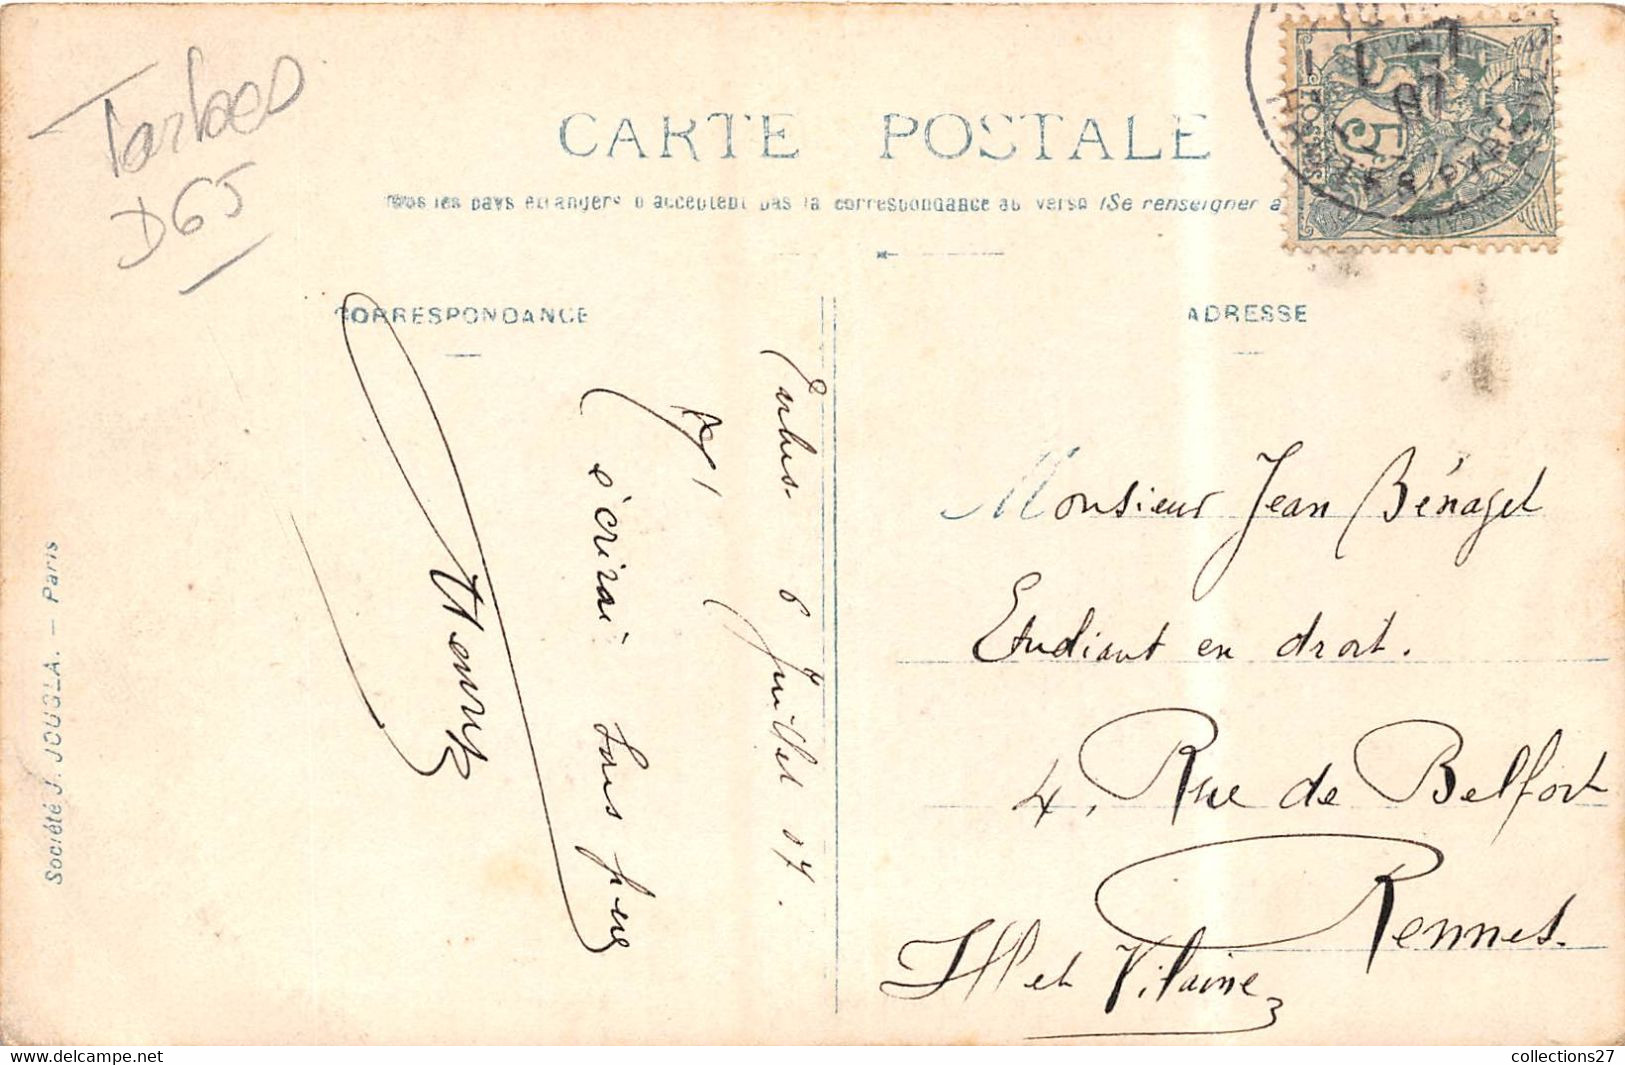 Tarbes
D65
CARTE POSTALE
Tous les pays étrangers n'acceptent pas la correspondance au verso (Se renseigner à
CORRESPONDANCE
ADRESSE
Tarbes 6 Juillet 07.
J'écrirai sous peu
Henry
Monsieur Jean Bénazet
Etudiant en droit.
4, Rue de Belfort
Rennes.
Ille et Vilaine
Société J. JOUGLA. — Paris
5
collections27